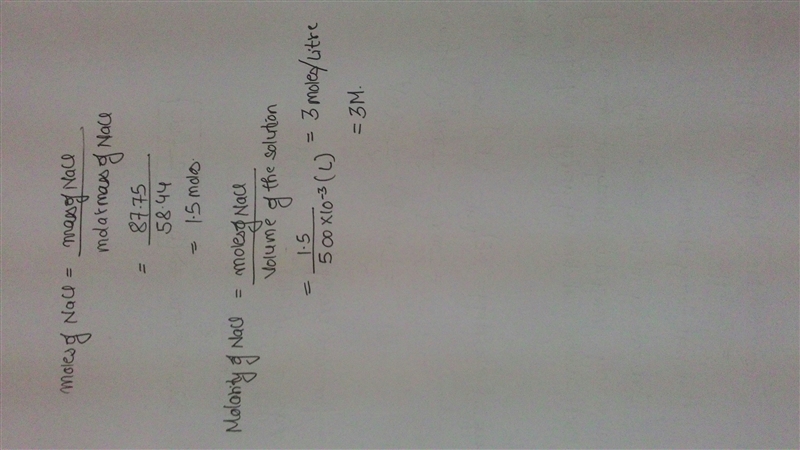 moles of NaCl = mass of NaCl / molar mass of NaCl
= 87.75 / 58.44
= 1.5 moles.
Molarity of NaCl = moles of NaCl / Volume of the solution
= 1.5 / 500 x10⁻³ (L) = 3 moles/Litre
= 3M.